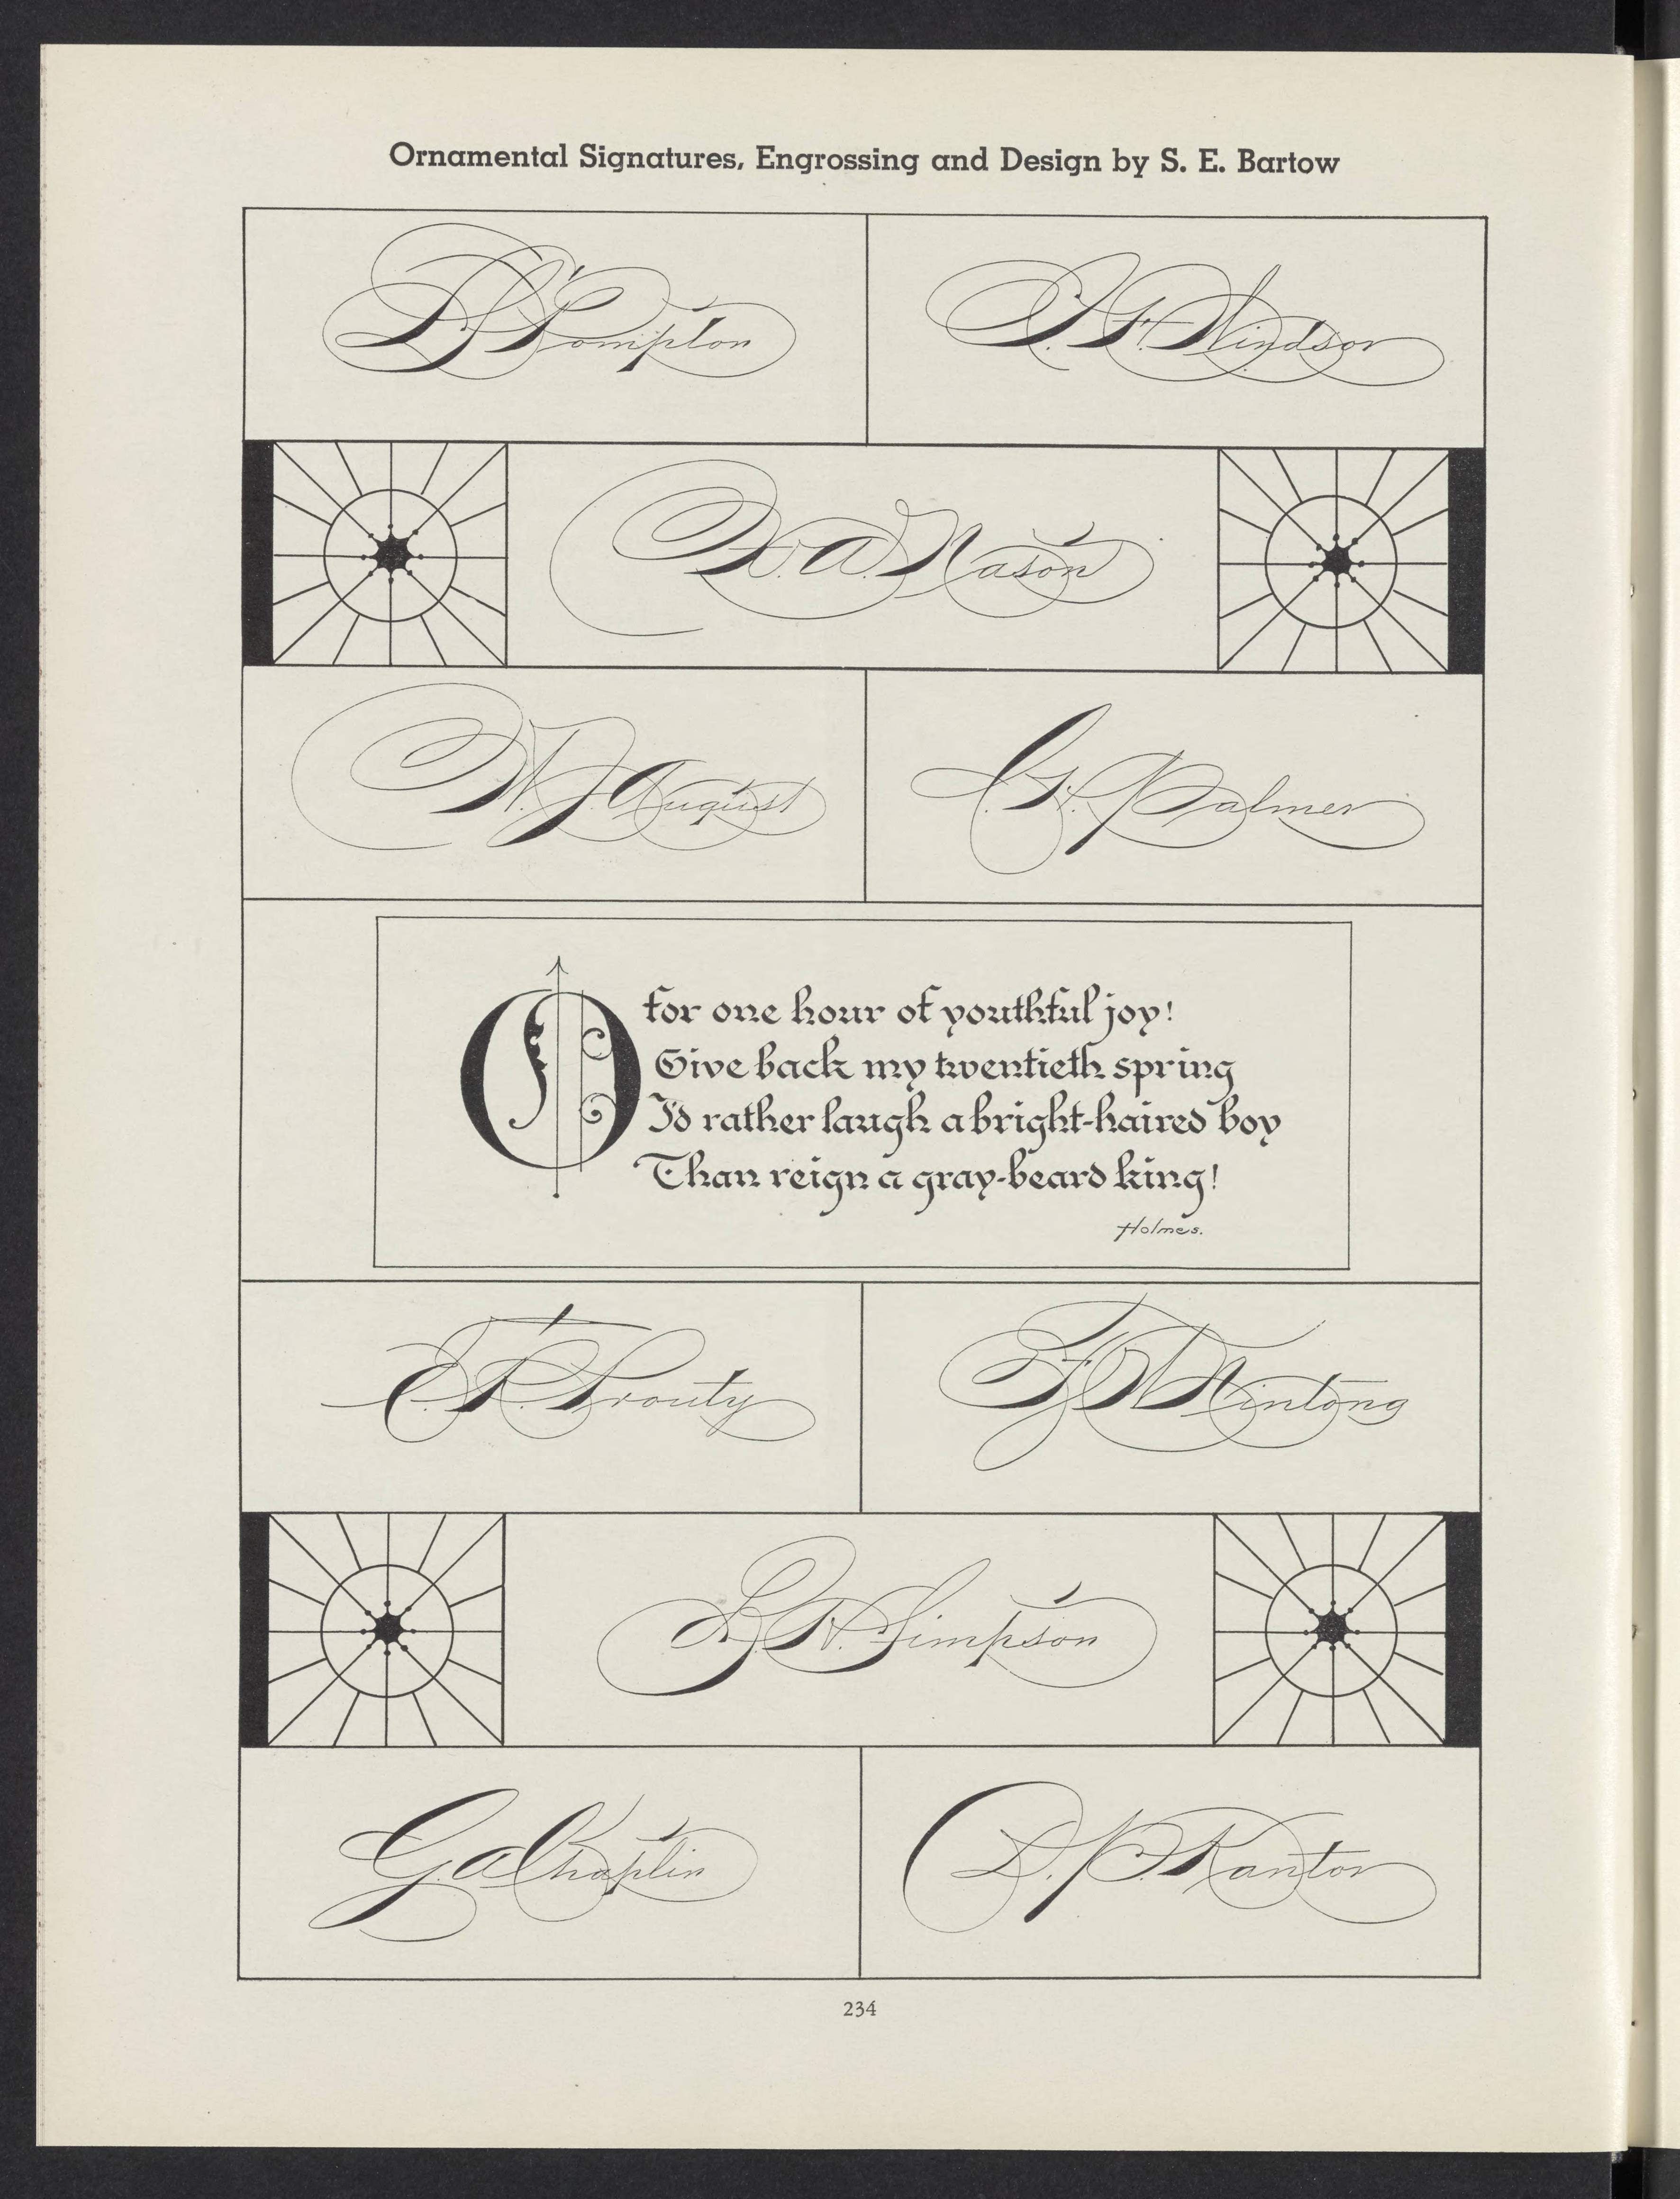 Ornamental Signatures, Engrossing and Design by S. E. Bartow
Compton
Windsor
A. Nason
W. J. August
Palmer
O for one hour of youthful joy!
Give back my twentieth spring
I'd rather laugh a bright-haired boy
Than reign a gray-beard king!
Holmes.
Prouty
Wintong
Simpson
G. A. Chaplin
D. P. Kantor
234